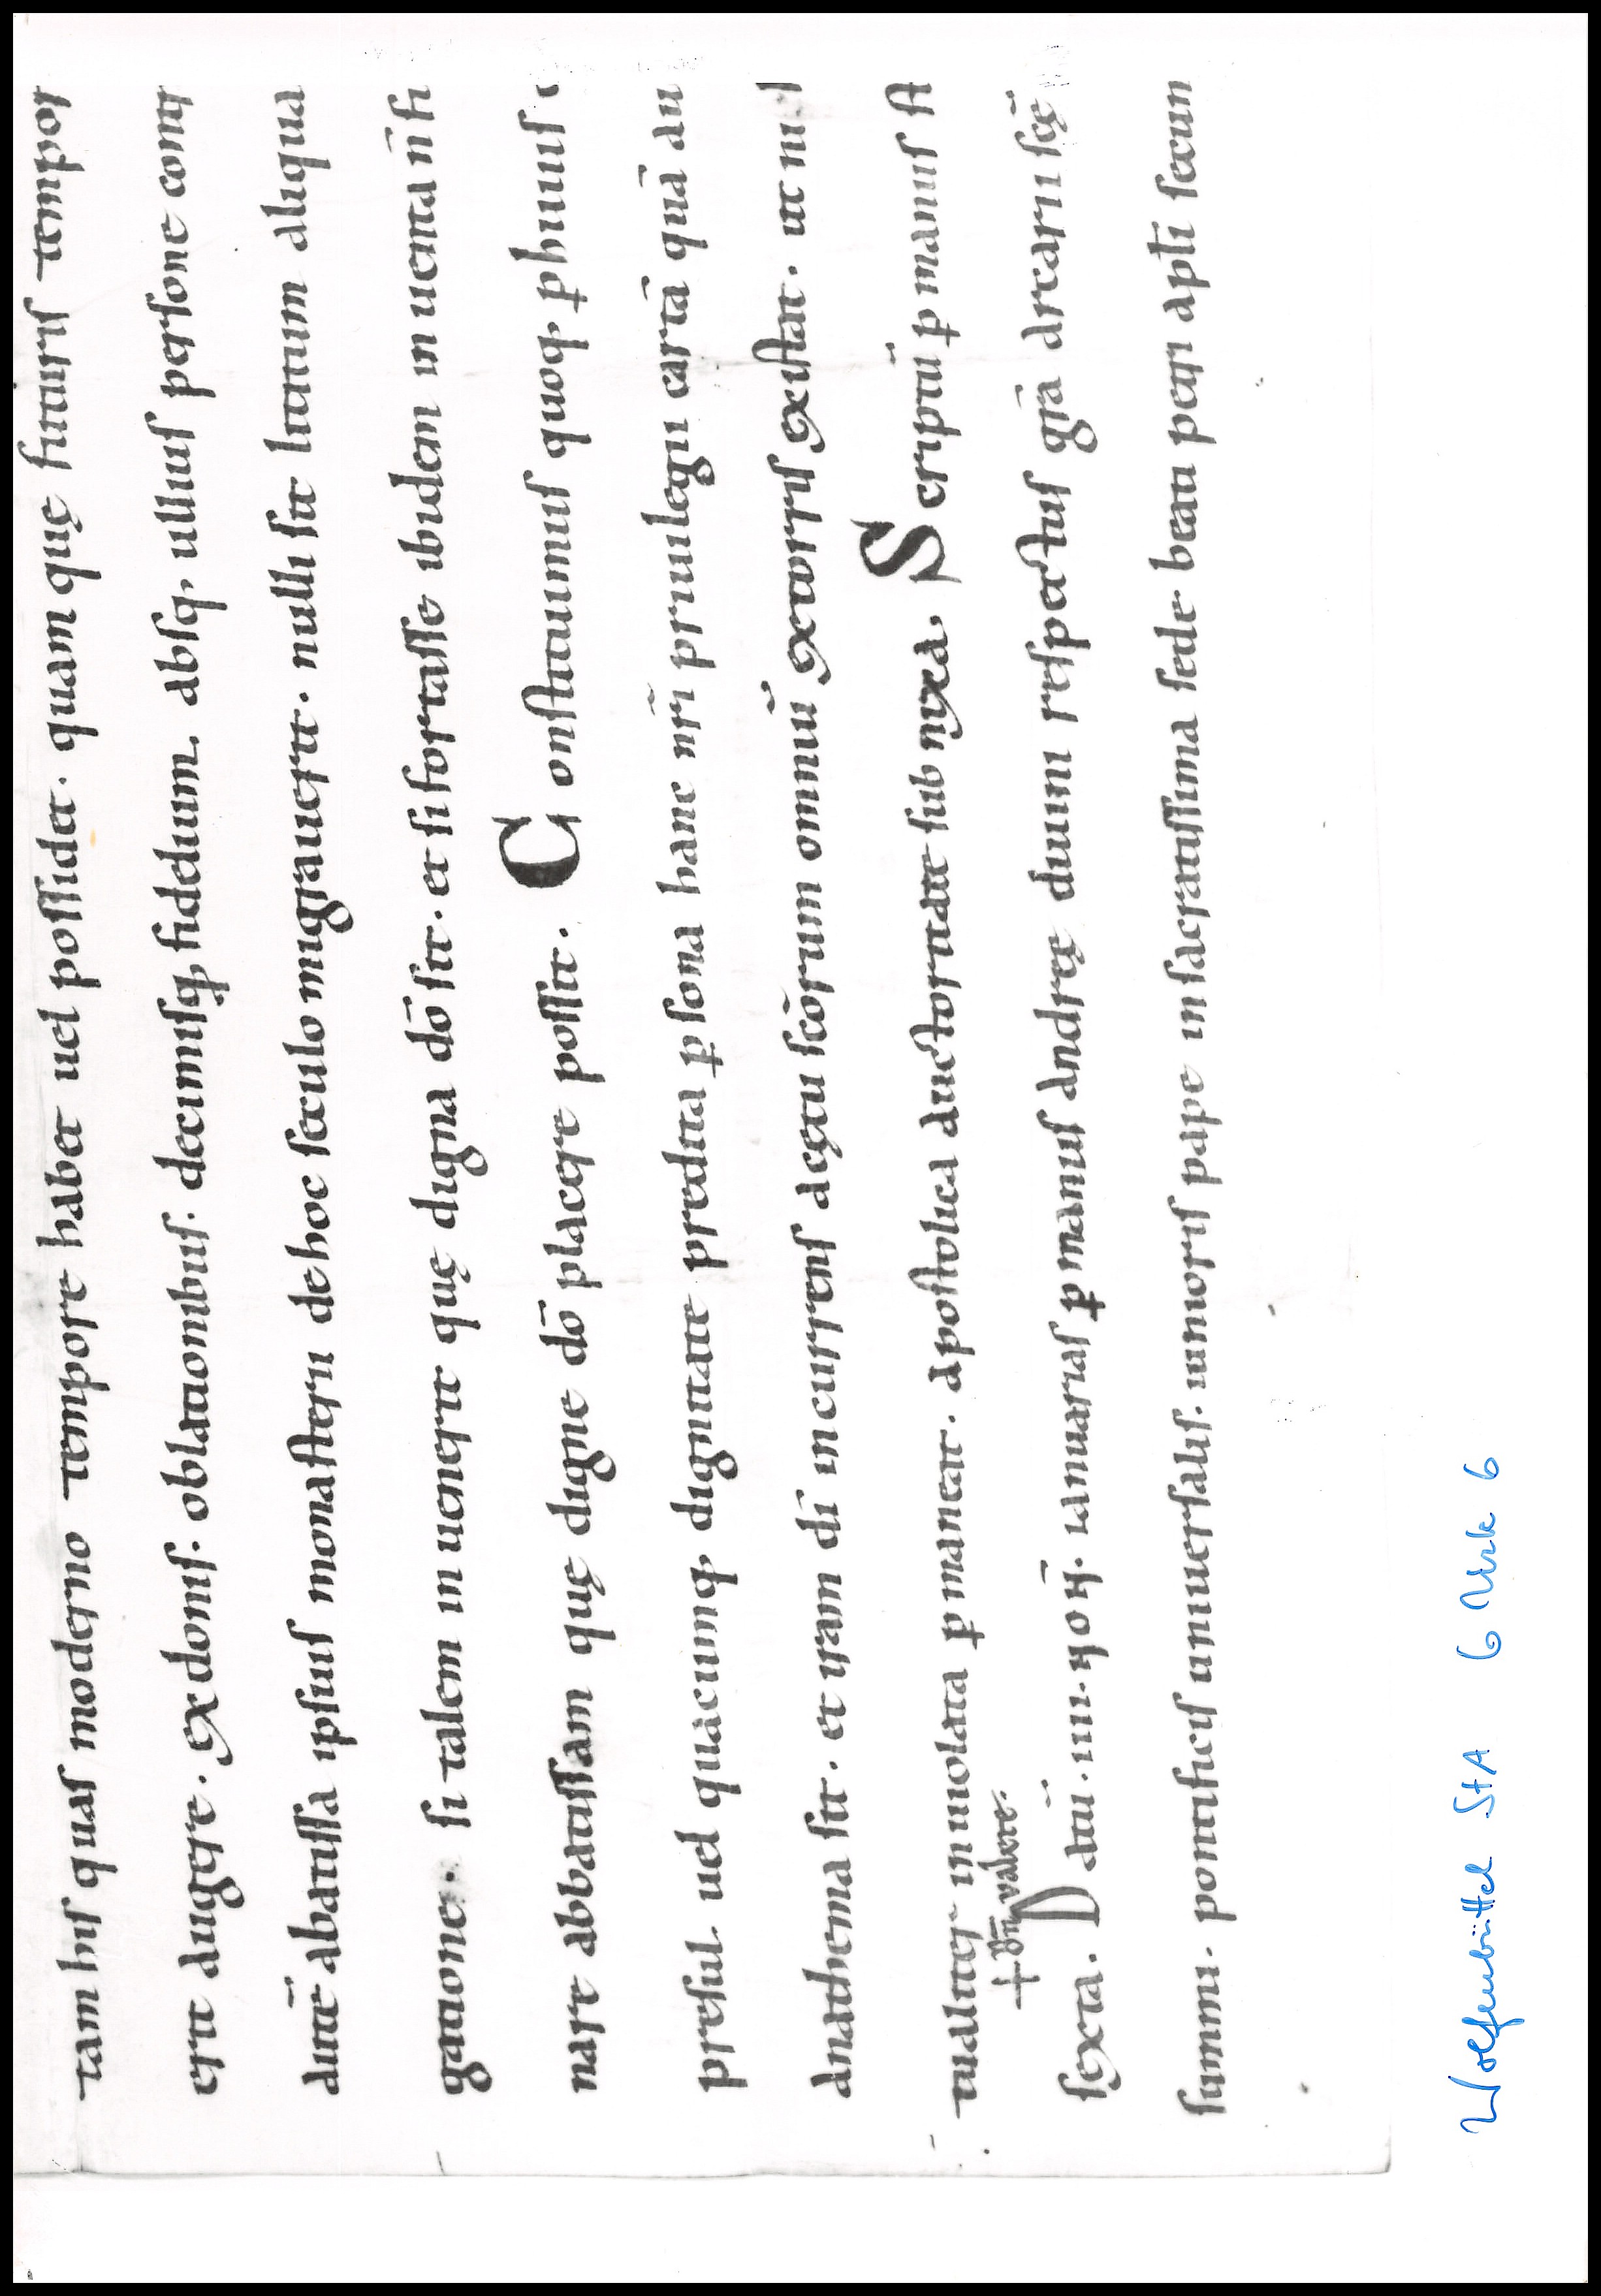 tam hiſ quaſ moderno tempore habet uel poſſidet. quam quę futuriſ tempor
erit augere. ex doniſ. oblationibuſ. decimiſq; fidelium. abſq; ulliuſ perſone contr
autē abatiſſa ipſiuſ monaſterii de hoc ſeculo migrauerit. nulli ſit licitum aliqua
gatione. ſi talem inuenerit quę digna dō ſit. et ſi fortaſſe ibidem inuenta ñ fu
nare abbatiſſam quę digne dō placere poſſit. Conſtituimuſ quoq; p̱ huiuſ
preſul. uel quacumq; dignitate predita p̱ſona hanc nr̄i priuilegii cartā quā au
anathema ſit. et iram dī incurrenſ a cętu ſcōrum omniū extorriſ exiſtat. ut ni
tualiter inuiolata p̱maneat. apoſtolica auctoritate ſubnixa. Scriptū p̱ manuſ ſt
+ Bn̄ ualete.
ſexta. Datū. IIII. non̄. ianuariaſ p̱ manuſ andreę diuini reſpectuſ gr̄a arcarii ſcę̄
ſummi. pontificiſ uniuerſaliſ. iunioriſ pape in ſacratiſſima ſede beati petri apl̄i ſecun
Wolfenbüttel StA 6 Urk 6